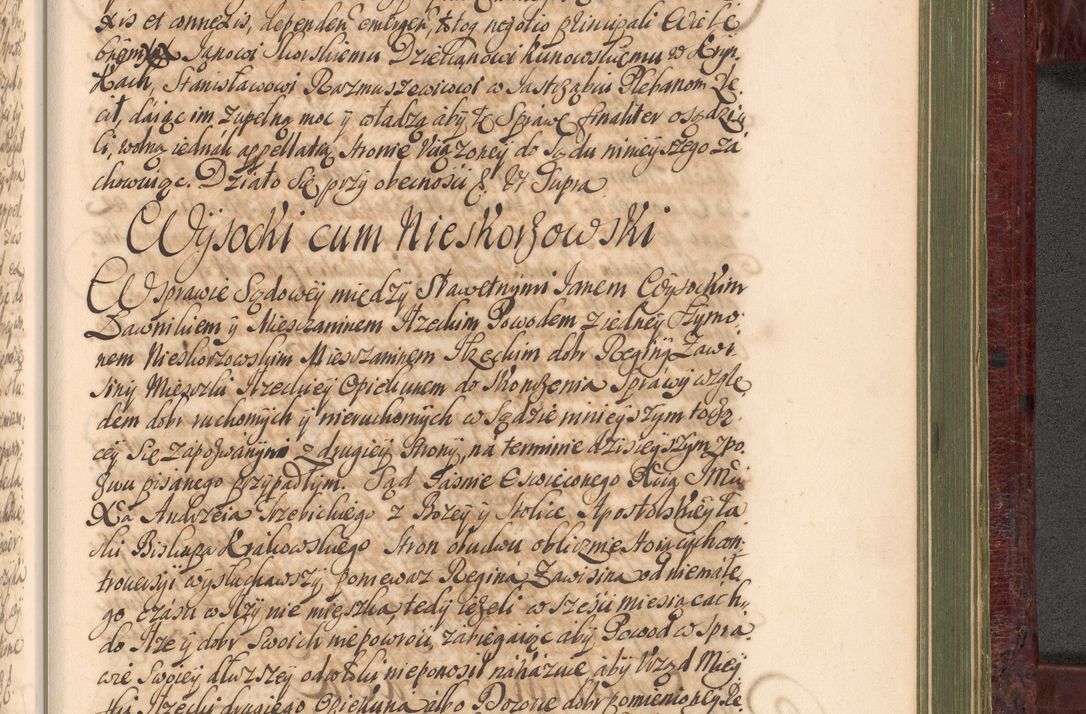 xis et connexis, dependen emergen, totoq negotio principali
Janowi Dziekanowi Kunowskiemu w Kryn
kach, Stanisławowi Rozmuszewicowi w Jastrząbiu Plebanom
cił, daiąc im zupełną moc y władzą aby tę Sprawę finaliter osądzi
li, wolną iednak appellatią Stronie Urażoney do Sądu nineyszego za
chowuiąc. Działo Się przy obecności &. Ut Supra
Wysocki cum Nieskorzowski
W Sprawie Sądowey między Sławetnymi Janem Wysockim
Ławnikiem y Mieszczaninem Iłzeckim Powodem z iedney Szymo
nem Nieskorzowskim Mieszczaninem Iłzeckim dobr Reginy Zawi
siny Mieszki Iłzeckiey Opiekunem do Skonczenia Sprawy wzglę
dem dobr ruchomych y nieruchomych w Sądzie ninieyszym toczą
cey Się Zapozwanym z drugiey Strony, na terminie dzisieyszym z po
zwu pisanego przypadłym. Sąd Jasnie Oswieconego
Xa Andrzeia Trzebickiego z Bozey y Stolice Apostolskiey ła
ski Biskupa Krakowskiego Stron obudwu oblicznie stoiących con
troversyi wysłuchawszy, poniewaz Regina Zawisina od niemałe
go czasu w Iłzy nie mieszka, tedy iezeli w szesci miesiącach
do Iłze y dobr Swoich niepowroci, zabiegaiąc aby Powod w Spra
wie Swoiey dłuzszey odwłoki nieponosił nakazuie aby Urząd Miey
ski Iłzecki drugiego Opiekuna albo Dozorce dobr pomienioney Re